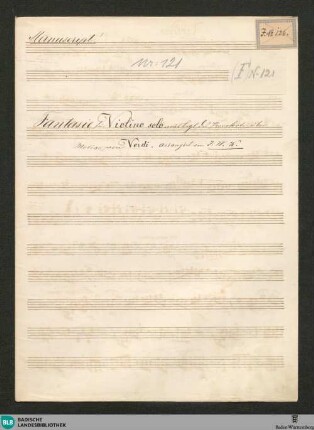 Manuscript!
Z.B.126.
Nr. 121
F N. 121
Fantasie f. Violino solo
von Verdi. arrangirt von
BLB BADISCHE
LANDESBIBLIOTHEK
Baden-Württemberg